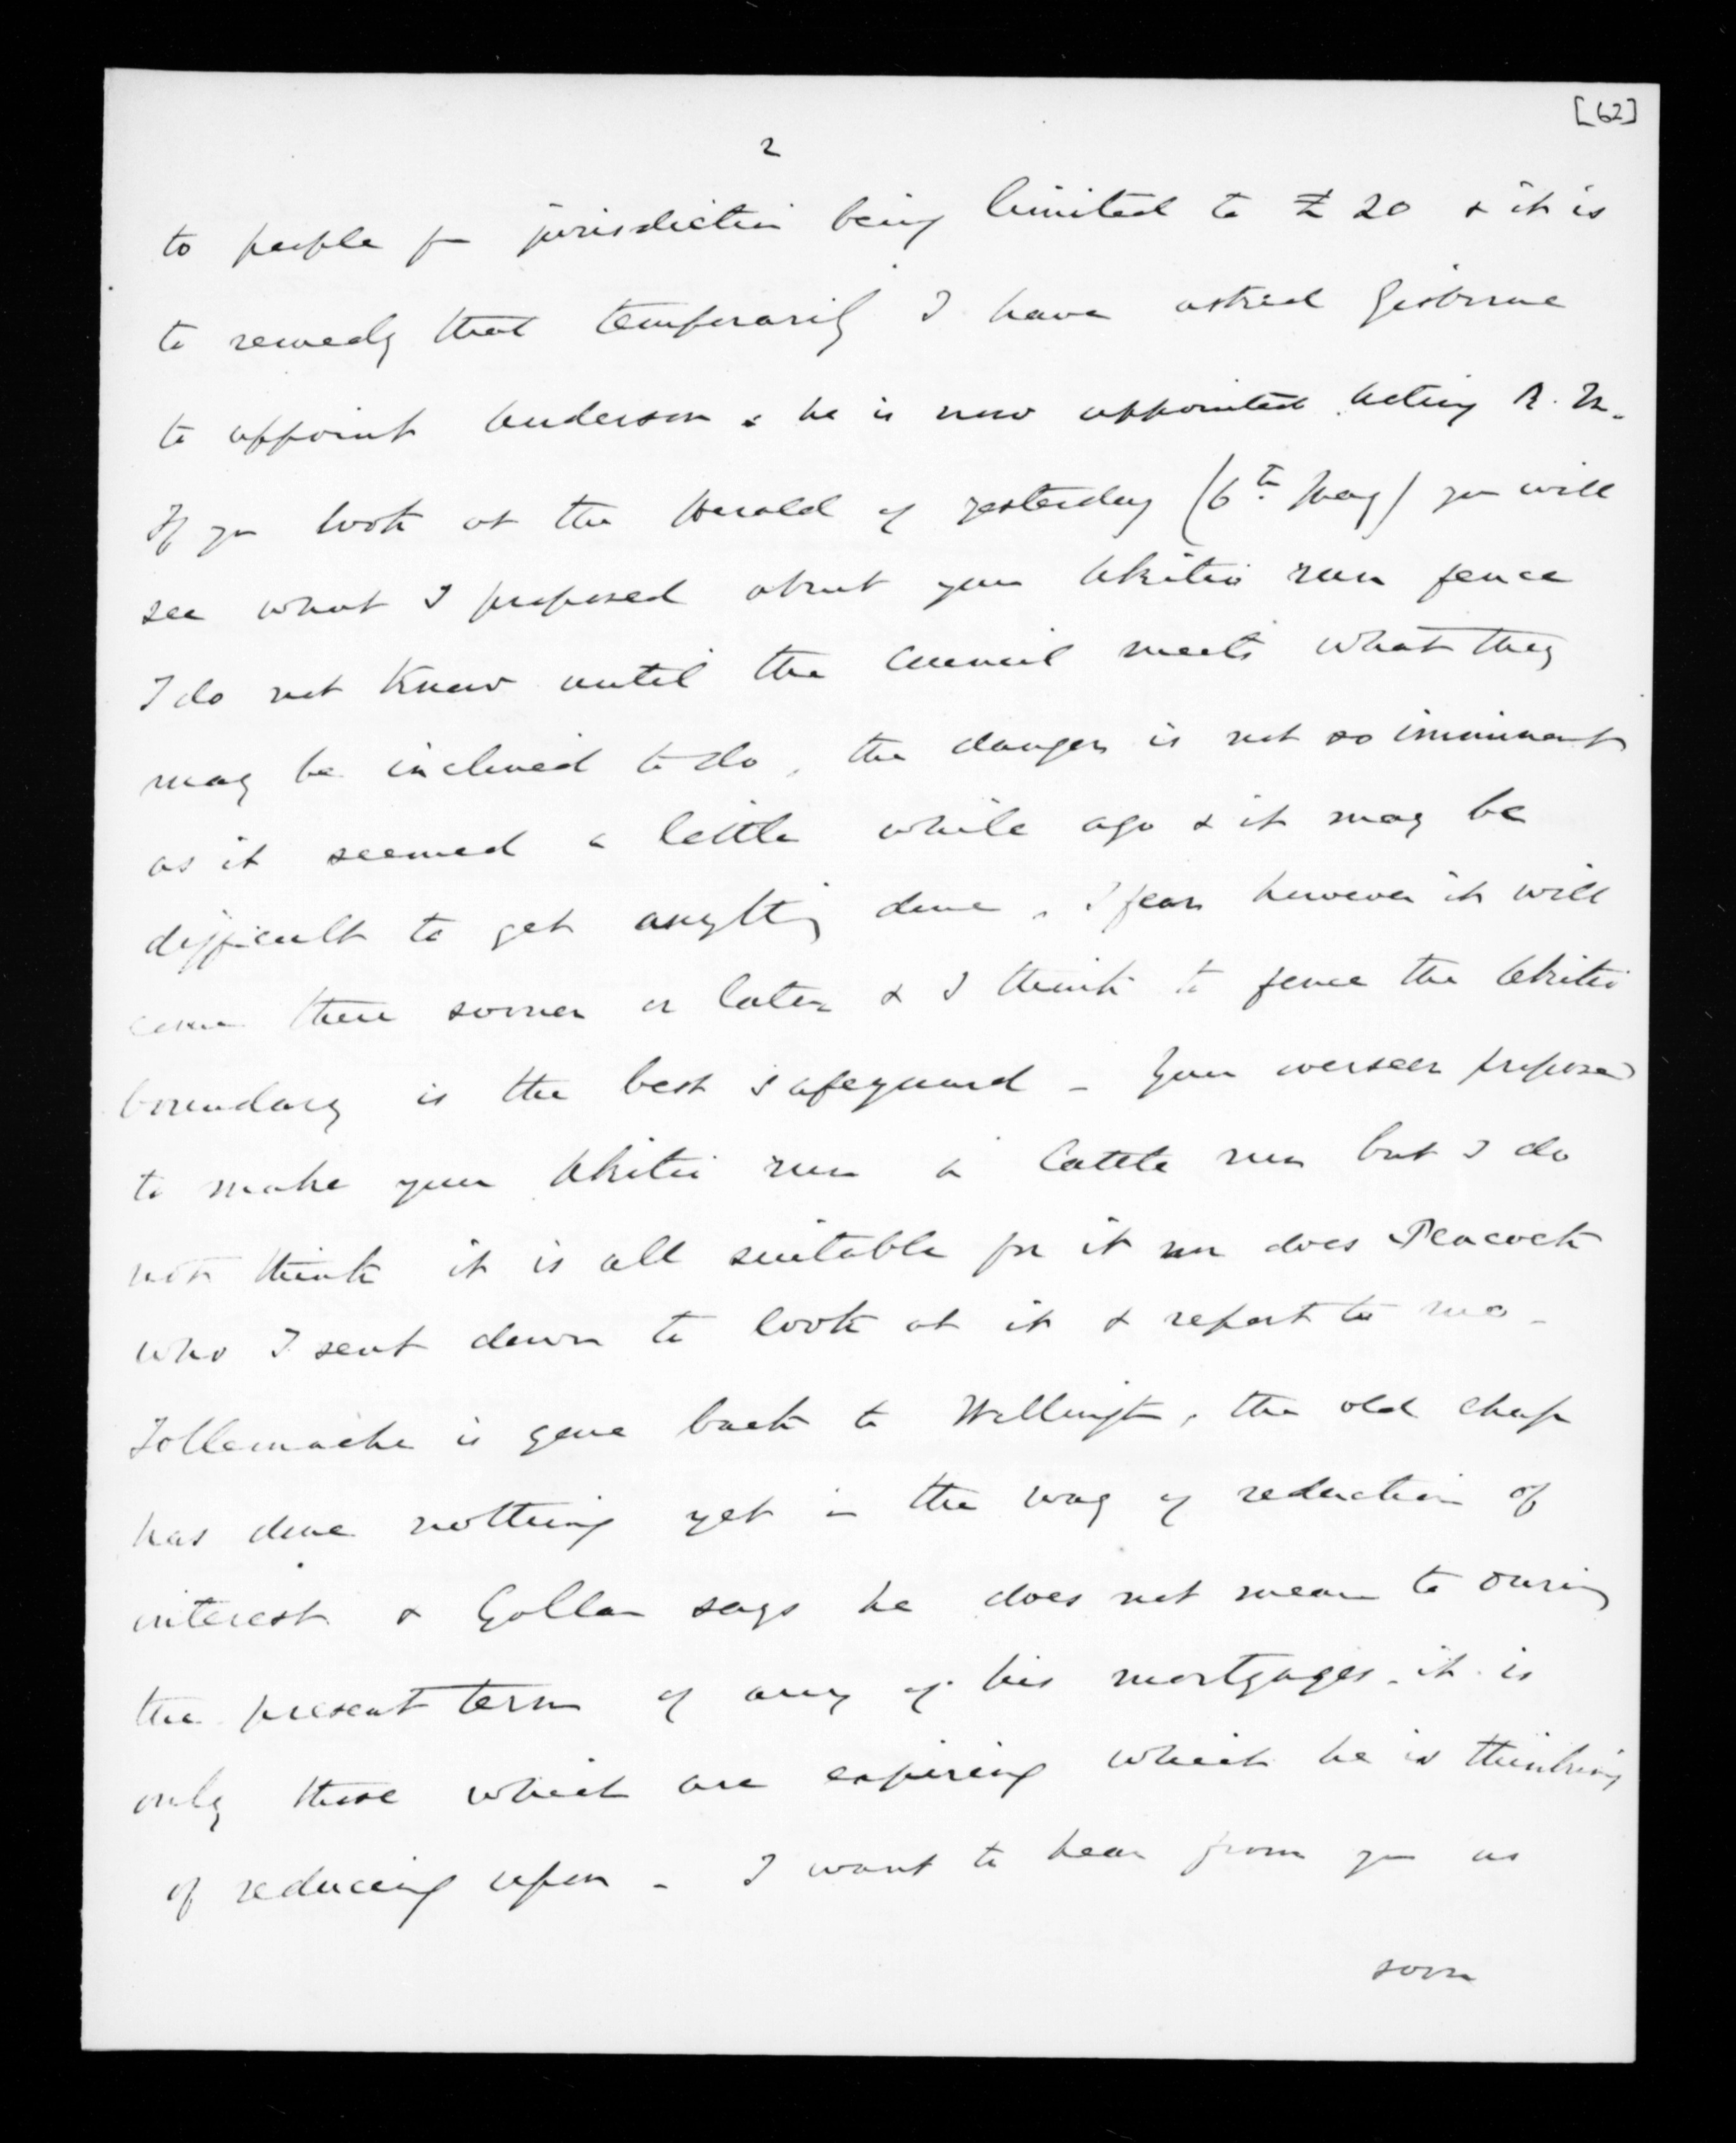 [62]
2
to people for jurisdiction being limited to £20 & it is
to remedy that temporarily I have asked Gisborne
to appoint Anderson & he is now appointed Acting R.M.
If you look at the Herald of yesterday (6th May) you will
see what I proposed about your Akitio run fence
I do not know until the Council meets what they
may be inclined to do, the danger is not so imminent
as it seemed a little while ago & it may be
difficult to get anything done, I fear however it will
come there sooner or later & I think to fence the Akitio
boundary is the best safeguard - Your overseer proposed
to make your Akitio run a Cattle run but I do
not think it is all suitable for it nor does Peacock
who I sent down to look at it & report to me -
Tollemache is gone back to Wellington, the old chap
has done nothing yet in the way of reduction of
interest & Gollan says he does not mean to during
the present term of any of his mortgages, it is
only those which are expiring which he is thinking
of reducing upon - I want to hear from you as
soon